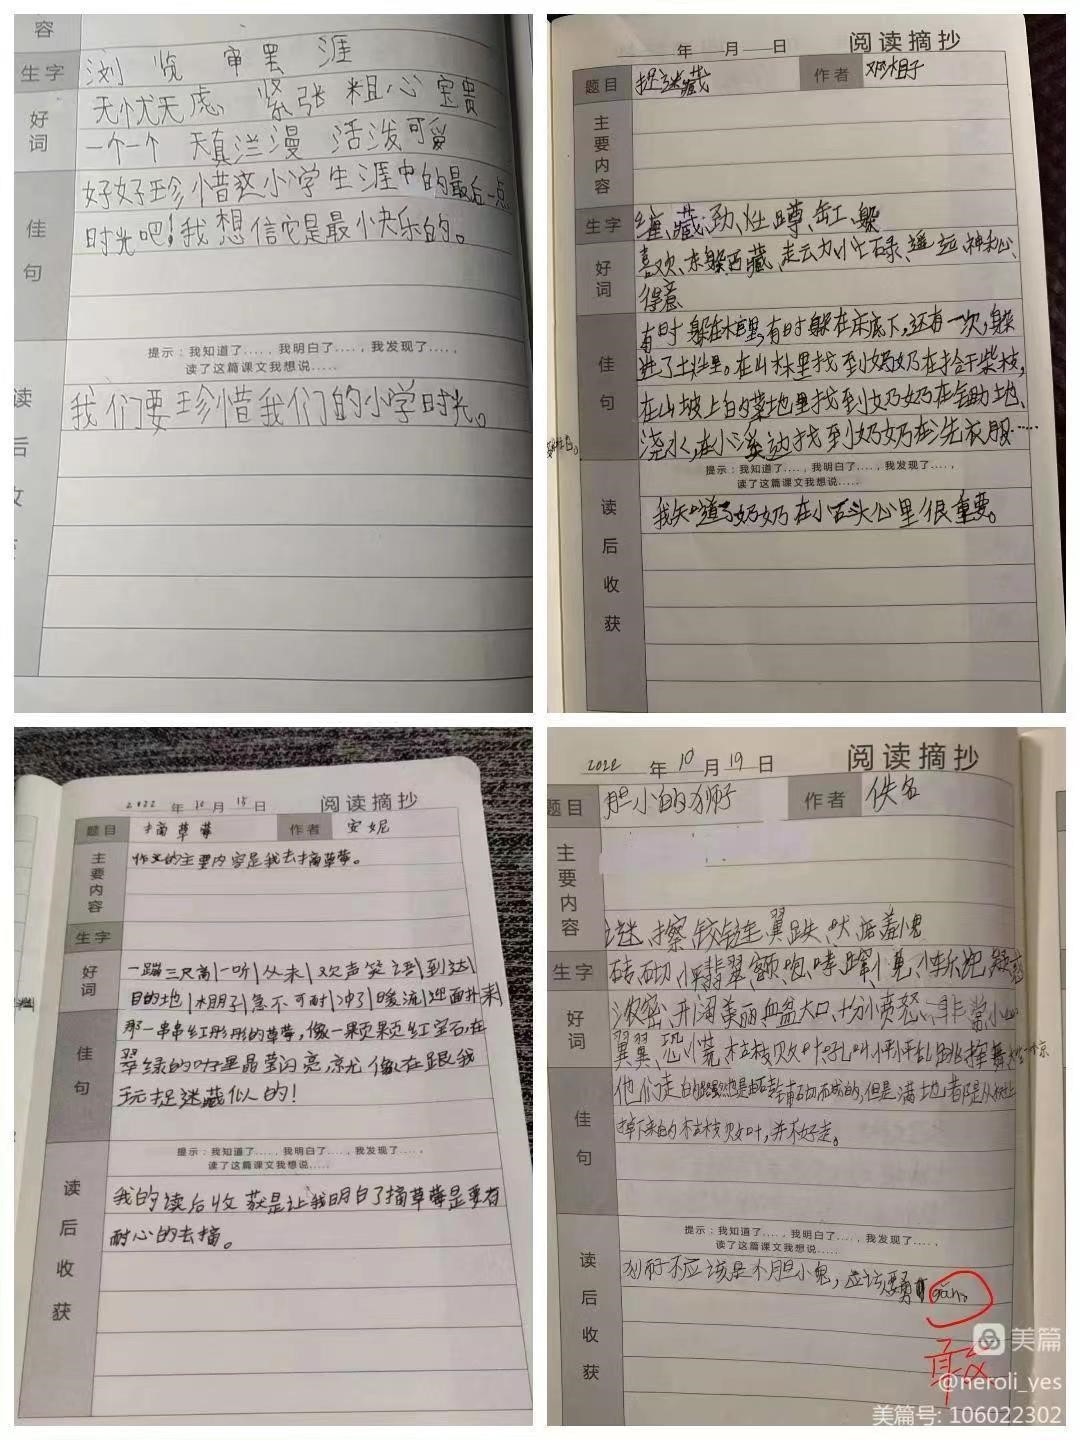 容
生字 浏 览 审 罢 涯
好词 无忧无虑 紧张 粗心 宝贵
一个一个 天真兰漫 活泼可爱
好好珍惜这小学生涯中的最后一点
佳句 时光吧!我想信它是最小快乐的。
提示：我知道了....，我明白了....，我发现了....，
读了这篇课文我想说.....
读后收
我们要珍惜我们的小学时光。
年 月 日 阅读摘抄
题目 捉迷藏 作者 邓湘子
主要内容
生字 缠、藏、劲、灶、蹲、缸、躲
好词 喜欢、东躲西藏、忙碌、遥远、神秘、
得意
有时躲在柜里,有时躲在床底下,还有一次,躲
佳句 进了土灶里。在山林里找到奶奶在拾干柴枝,
在山坡上的菜地里找到奶奶在锄地、
浇水,在小溪边找到奶奶在洗衣服……
提示：我知道了....，我明白了....，我发现了....，
读了这篇课文我想说.....
读后收获
我知道了奶奶在小石头心里很重要。
2022 年 10 月 15 日 阅读摘抄
题目 摘草莓 作者 安妮
主要内容 作文的主要内容是我去摘草莓。
生字
好词 一蹦三尺高|一听|从未|欢声笑语|到达|
目的地|棚子|急不可耐|冲了|暖流|迎面扑来
那一串串红彤彤的草莓,像一颗颗红宝石在
佳句 翠绿的叶里晶莹闪亮,就像在跟我
玩捉迷藏似的!
提示：我知道了....，我明白了....，我发现了....，
读了这篇课文我想说.....
读后收获
我的读后收获是让我明白了摘草莓是要有
耐心的去摘。
2022 年 10 月 19 日 阅读摘抄
题目 胆小的狮子 作者 佚名
主要内容
谜 擦 铰链 翼 跌 吠 羞愧
生字 砖 砌 翡翠 额 咆哮
好词 浓密 开阔 美丽 血盆大口 十分愤怒 非常小心
翼翼 恐慌 枯枝败叶 挥舞
他们走的路虽然也是由砖铺砌而成的,但是满地都是从树上
佳句 掉下来的枯枝败叶,并不好走。
提示：我知道了....，我明白了....，我发现了....，
读了这篇课文我想说.....
读后收获
狮子不应该是个胆小鬼,应该要勇 gǎn。
敢
美篇
@neroli_yes
美篇号: 106022302